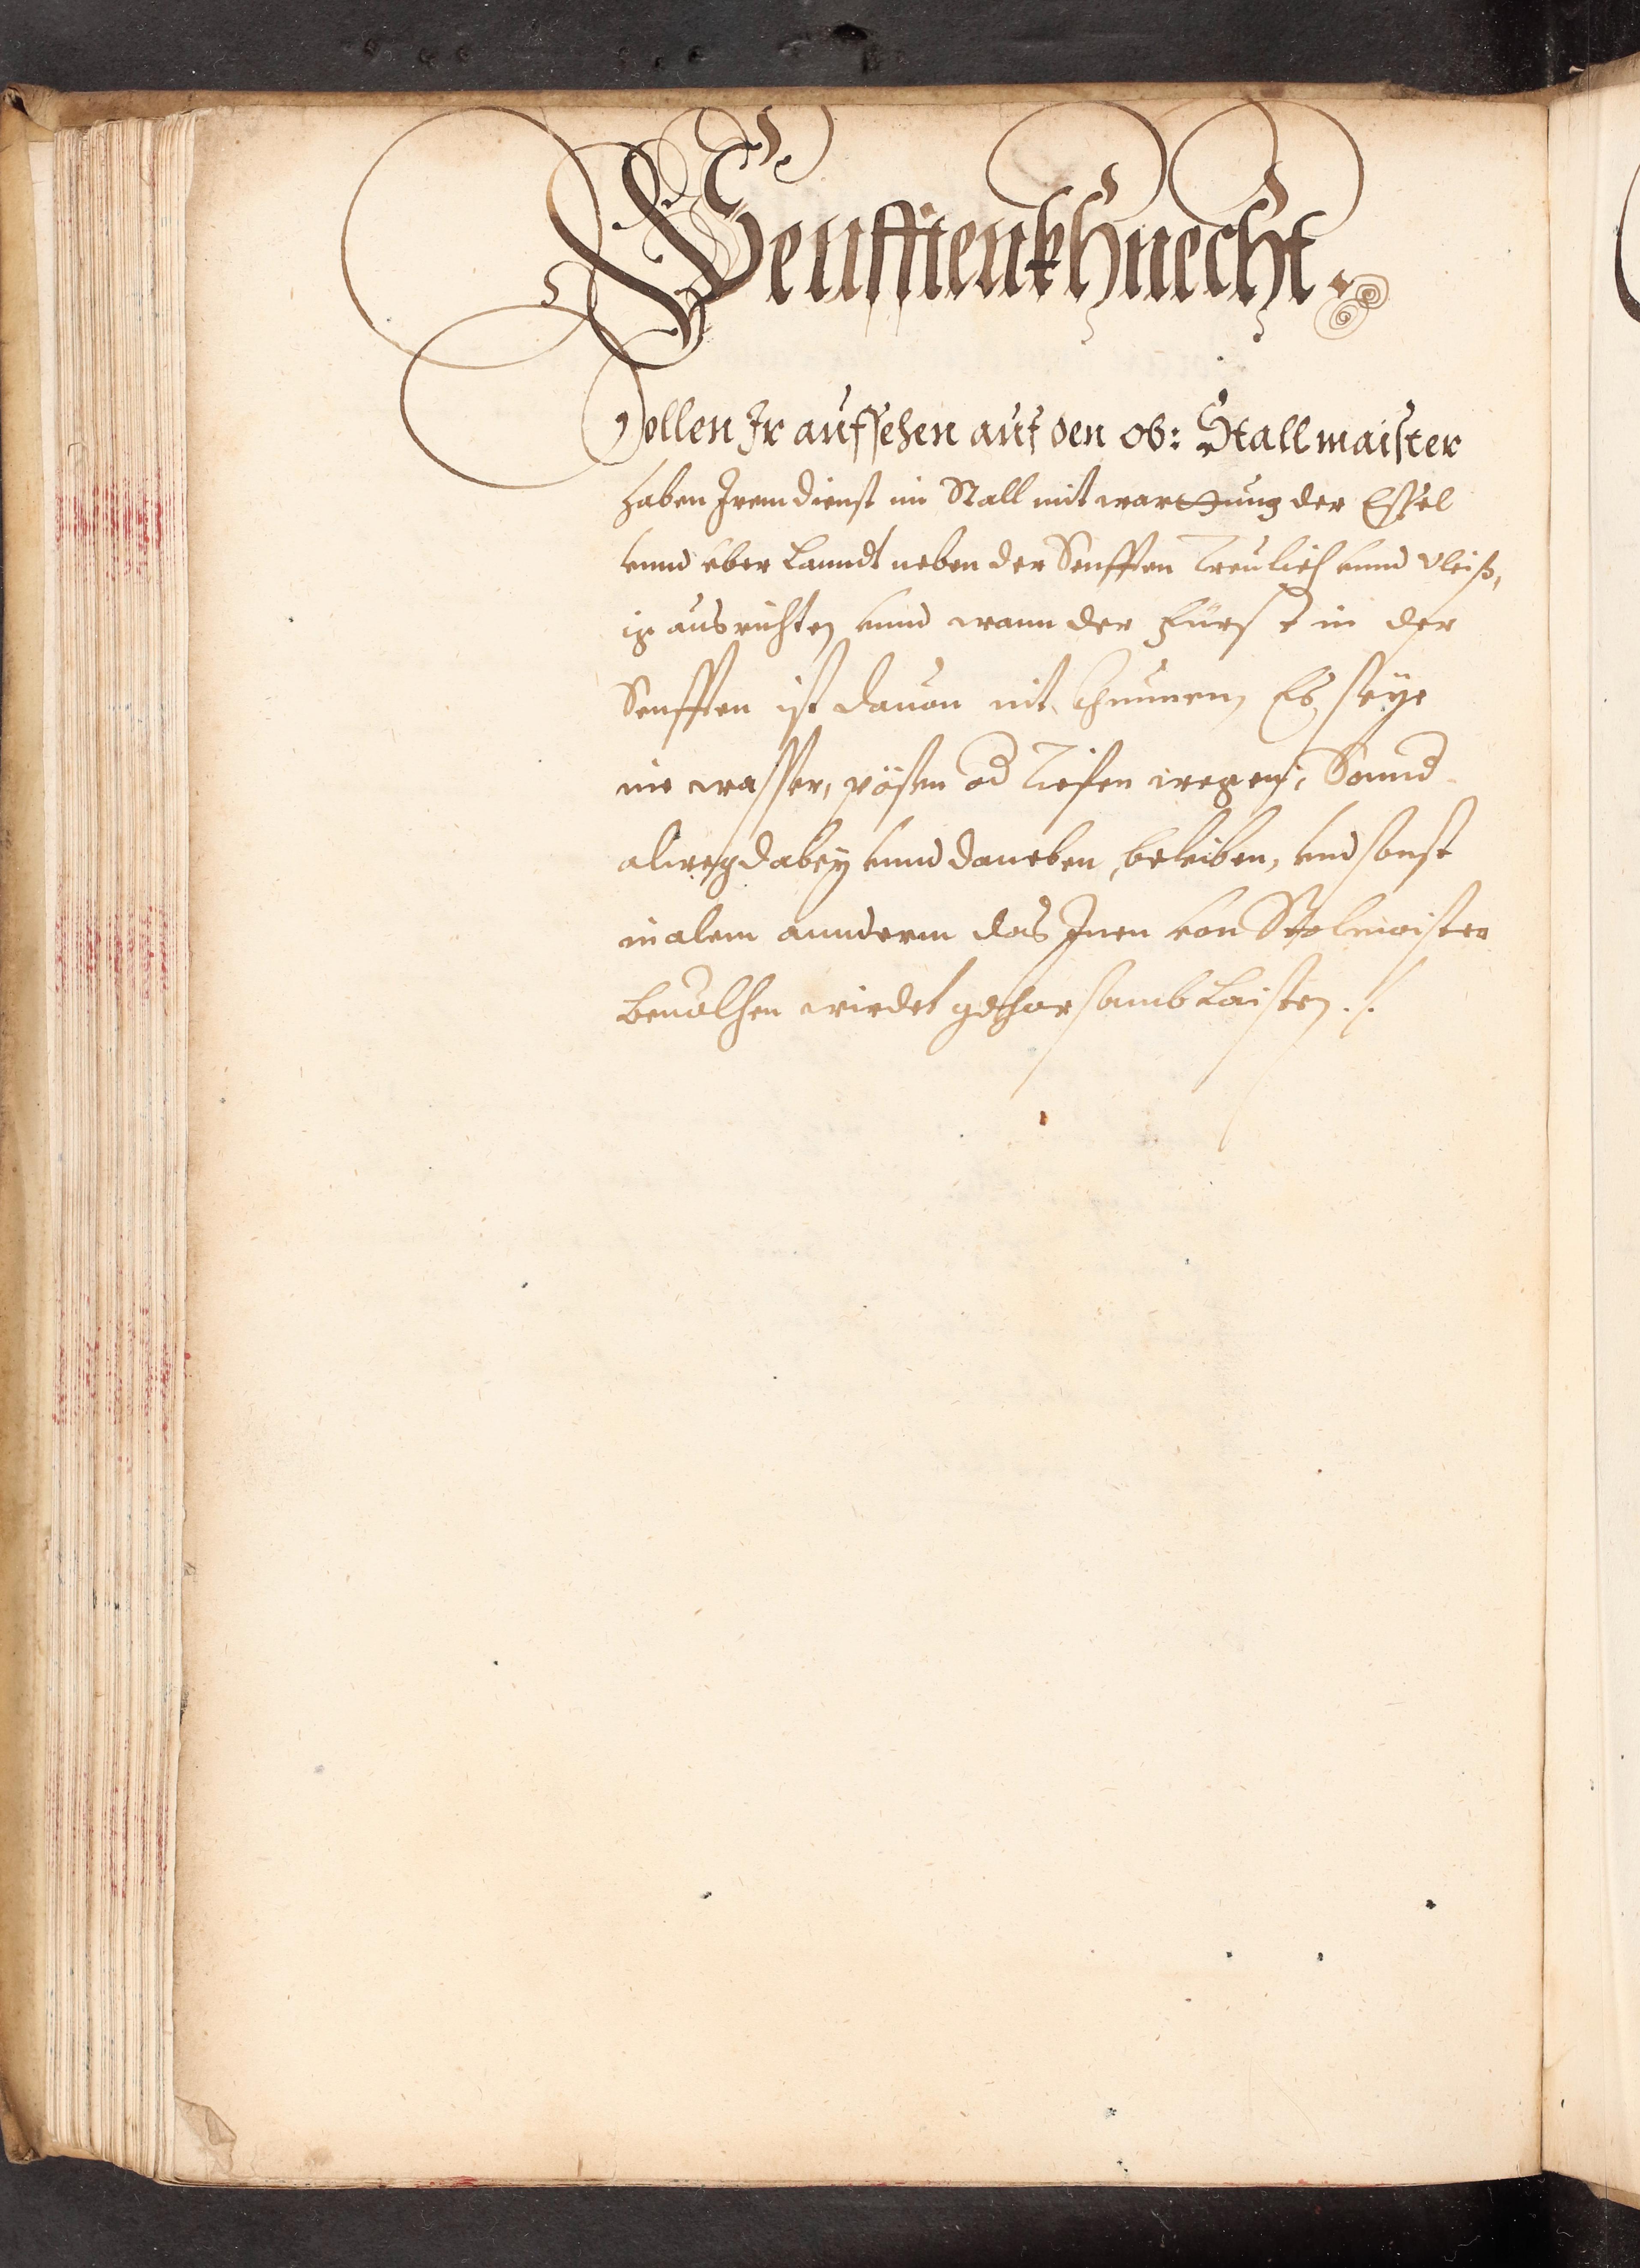 Senfftenkhnecht.
Sollen Ir aufsehen auf den ob: Stallmaister
haben Irem dienst im Stall mit warttung der Essel
vnnd vber Lanndt neben der Senfften treulich vnnd vleiß,
ig ausrichten vnnd wann der Fürst in der
Senfften ist dauon nit khumen, Es seye
im wasser, pösen od tiefen wegen, Sonnd
alweg dabey vnnd daneben beleiben, vnd sonst
in alem annderm das Inen von Stalmaister
beuolhen wirdet gehorsamb Laisten ./.